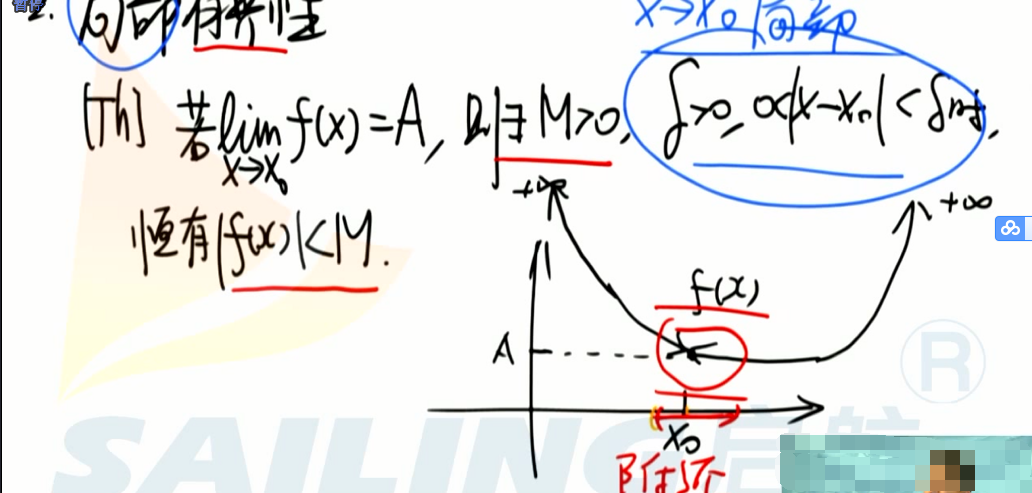 暂停
2. 局部有界性
x→x₀ 局部
[Th] 若 lim f(x)=A, 则∃ M>0, δ>0, 0<|x-x₀|<δ时,
x→x₀
恒有|f(x)|<M.
+∞
+∞
f(x)
A
x₀
附近
SAILING 启航
®